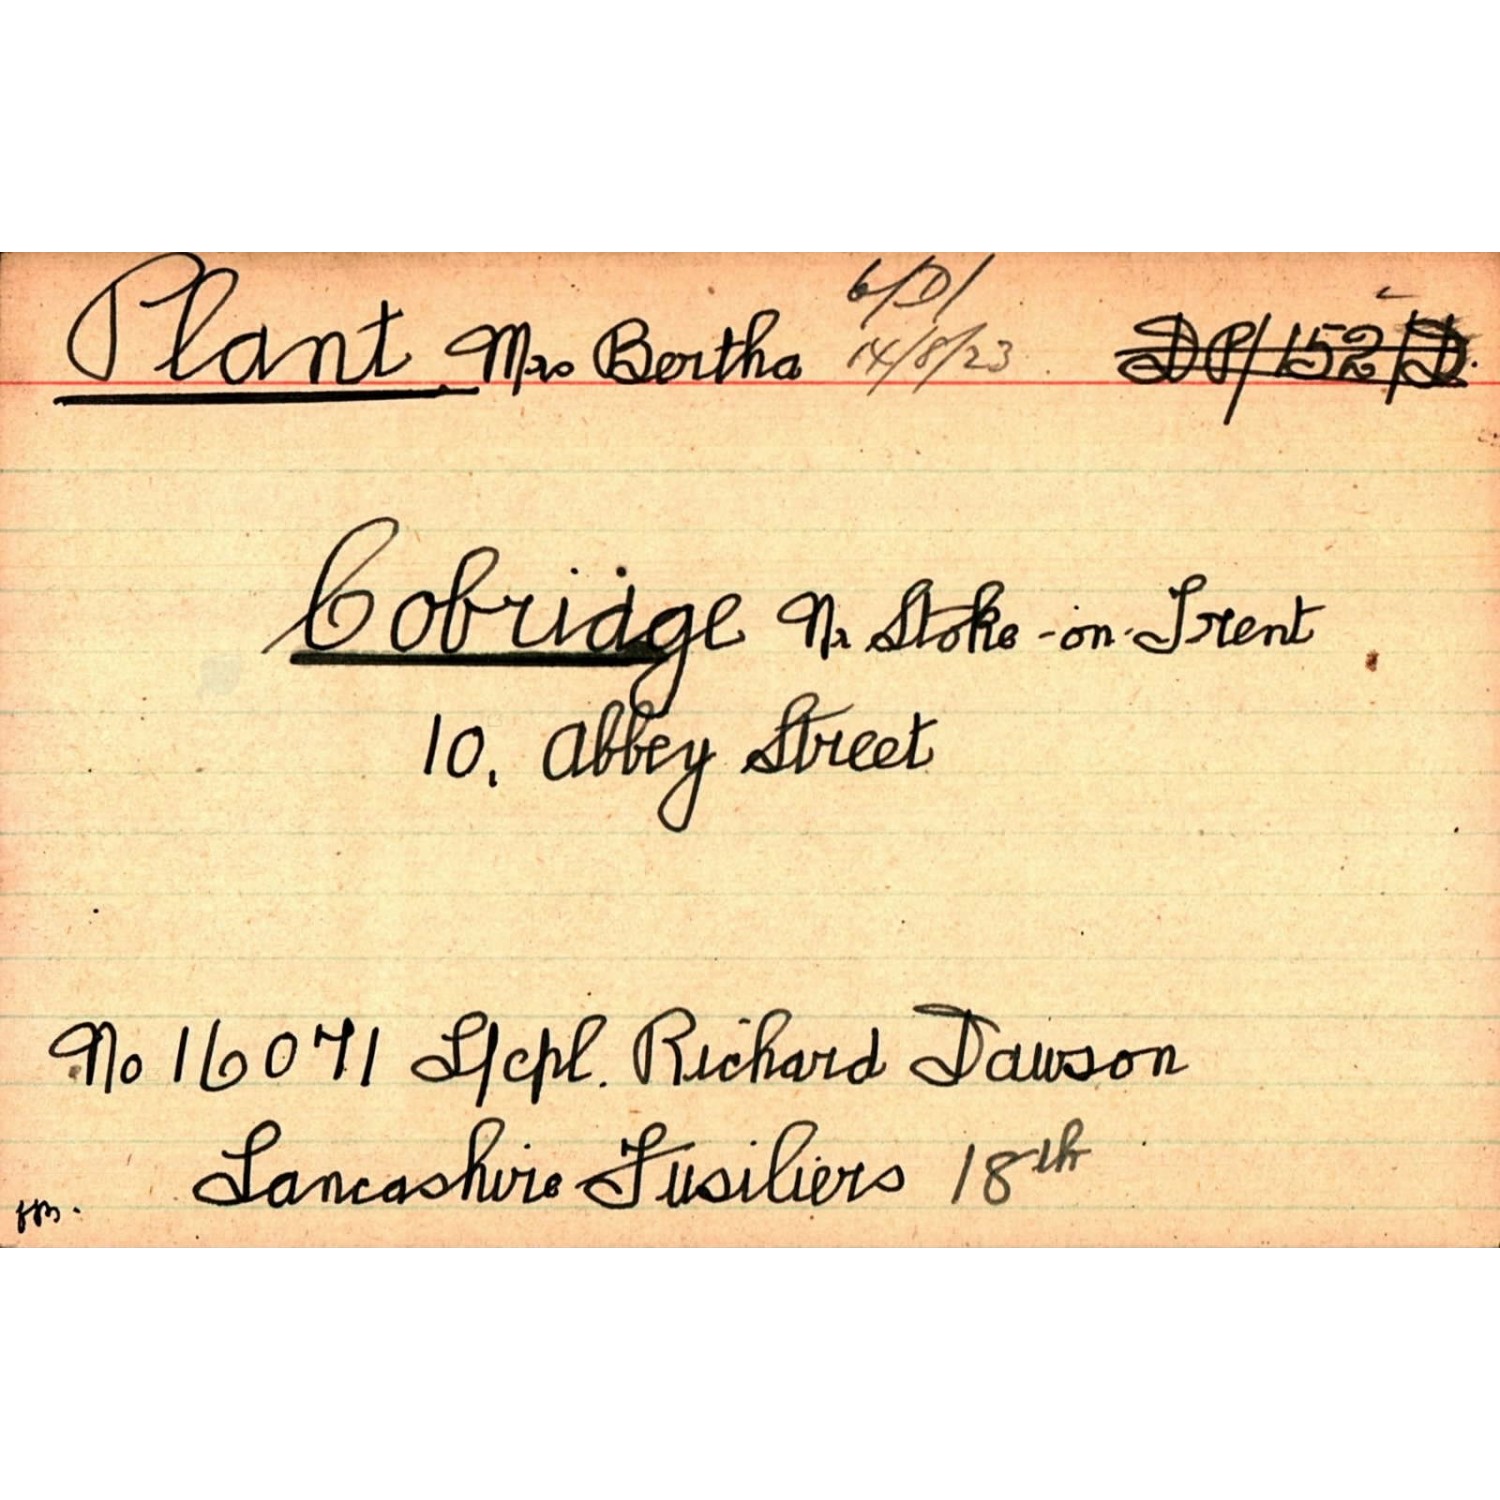 6/D/
Plant Mrs Bertha 14/8/23 DP/152/D.
Cobridge Nr Stoke-on-Trent
10, Abbey Street
No 16071 L/cpl. Richard Dawson
Lancashire Fusiliers 18th